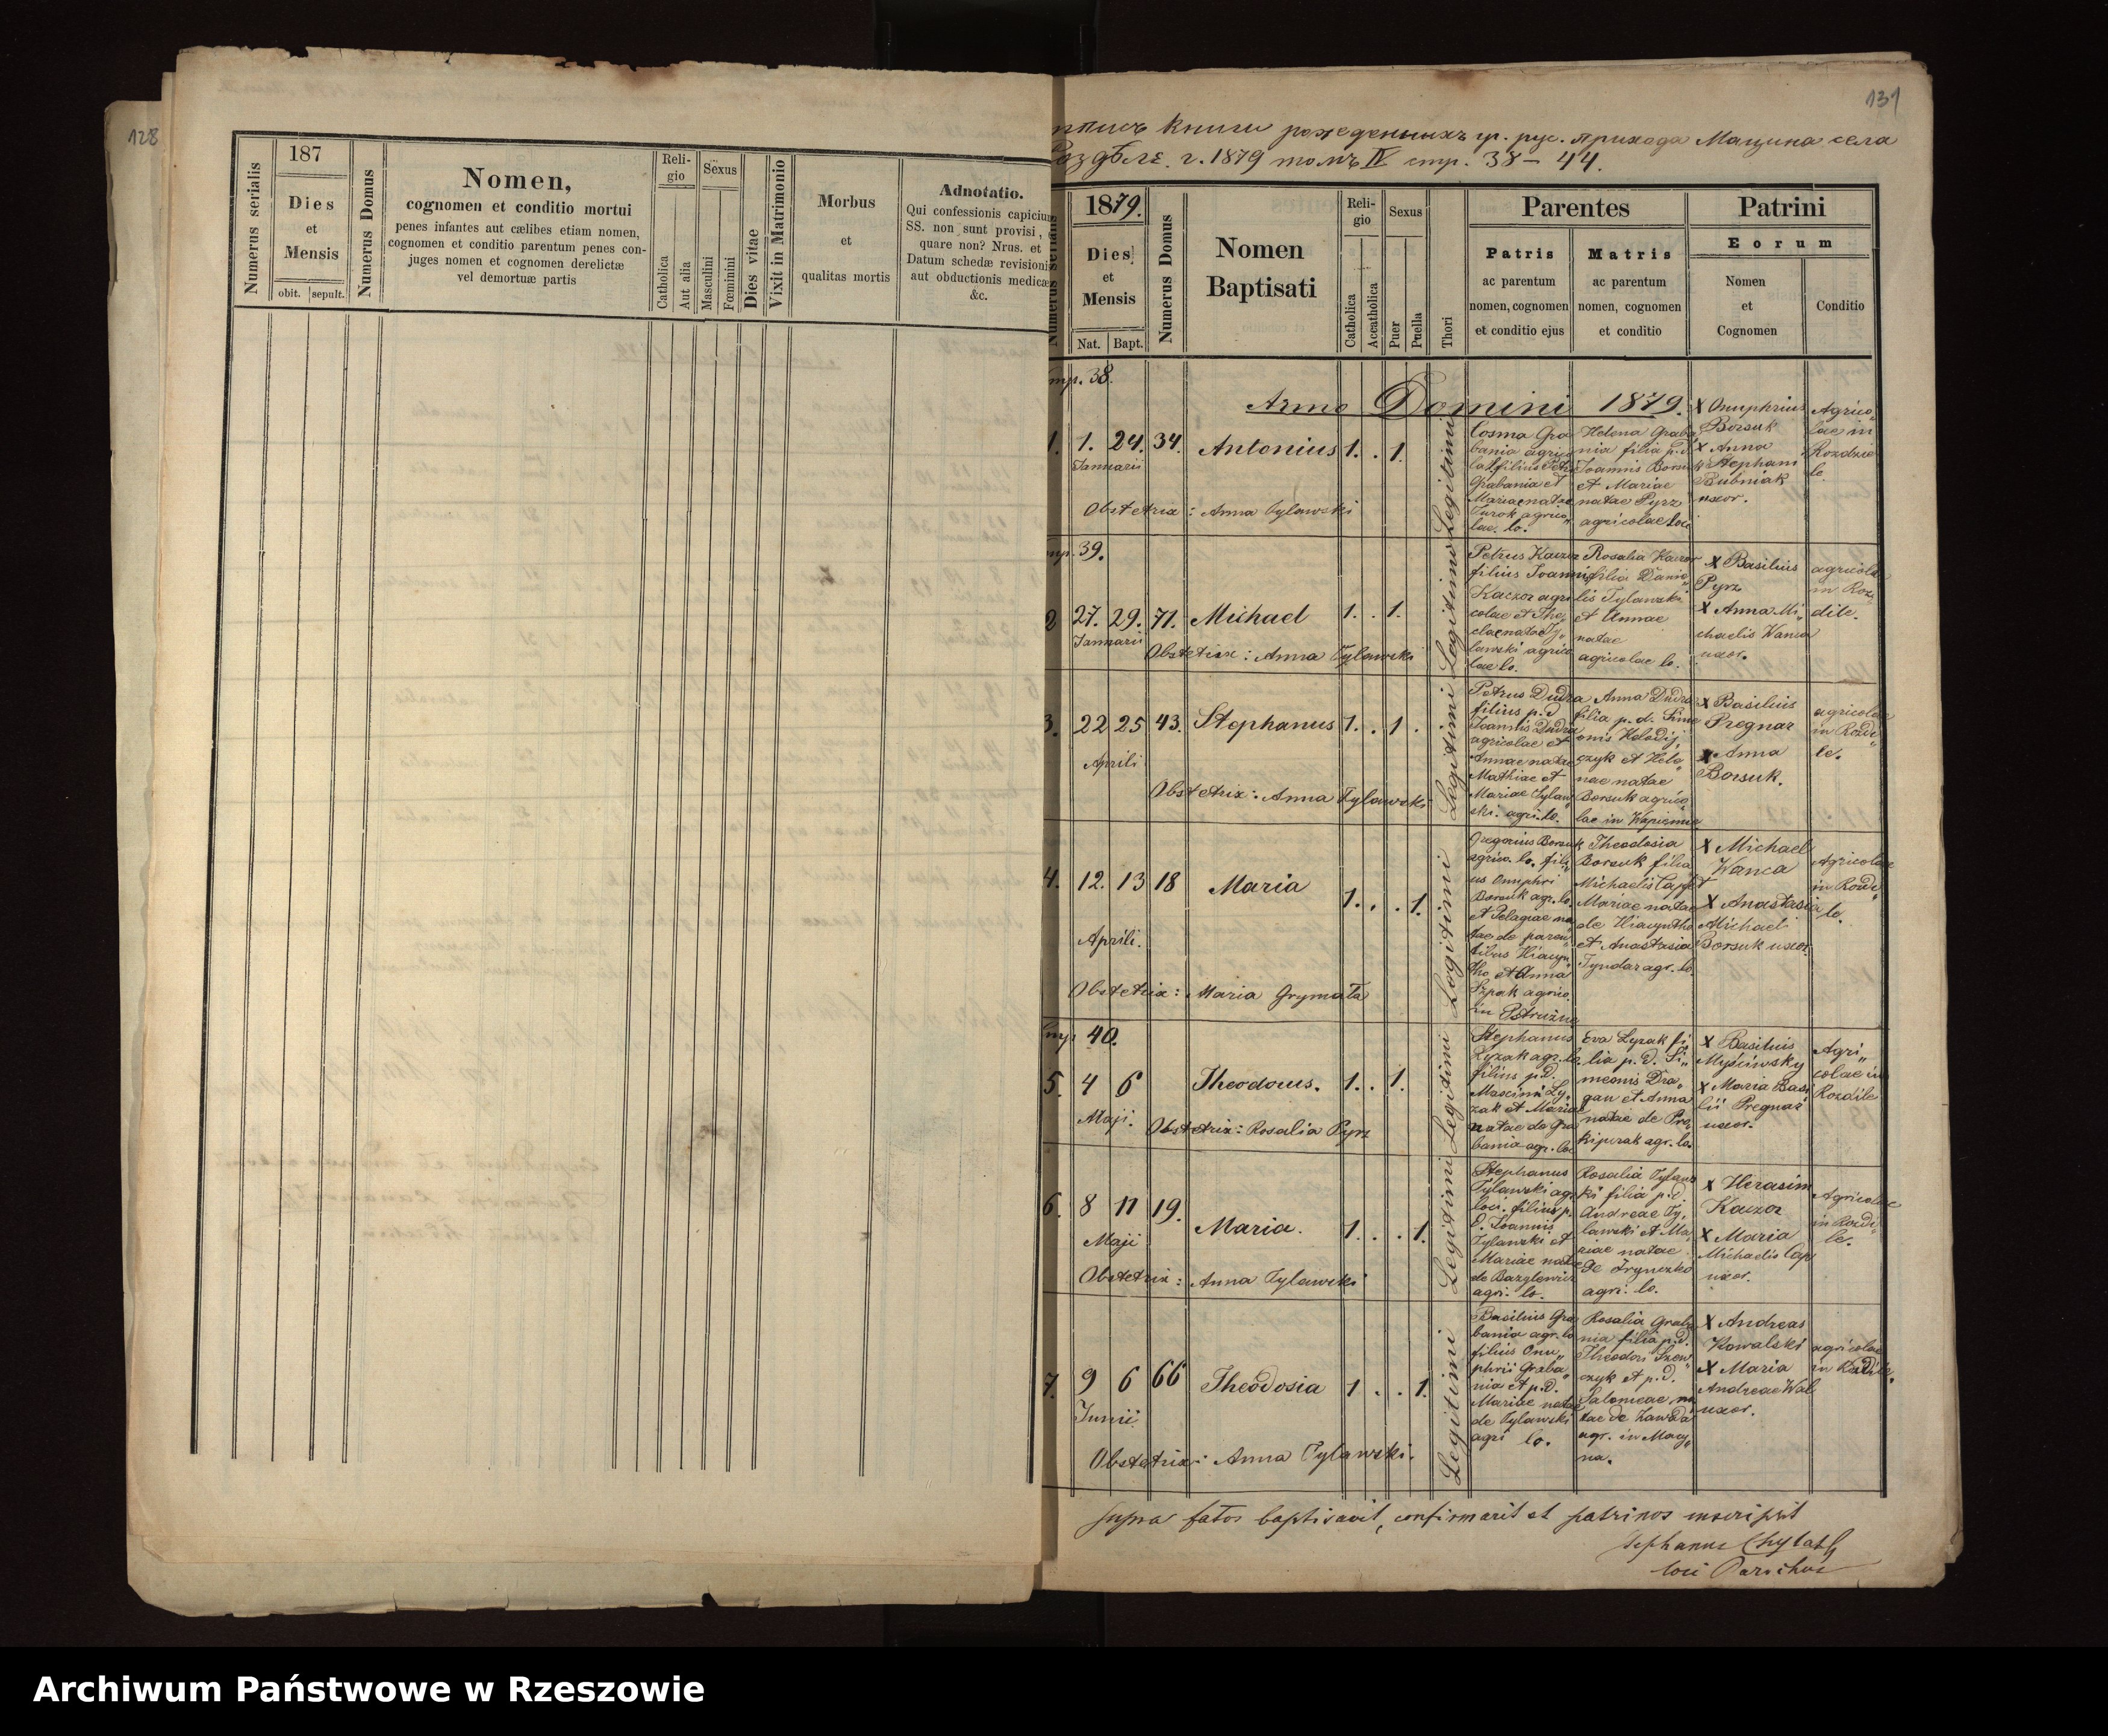 128
187
Numerus serialis
Dies
et
Mensis
obit. sepult.
Numerus Domus
Nomen,
cognomen et conditio mortui
penes infantes aut cælibes etiam nomen,
cognomen et conditio parentum penes con-
juges nomen et cognomen derelictæ
vel demortuæ partis
Reli-
gio
Catholica
Aut alia
Sexus
Masculini
Fœminini
Dies vitae
Vixit in Matrimonio
Morbus
et
qualitas mortis
Adnotatio.
Qui confessionis capicium
SS. non sunt provisi,
quare non? Nrus. et
Datum schedæ revisioni
aut obductionis medicæ
&c.
131
книги рожденныхъ гр. рус. прихода Мацина села
г. 1879 томъ IV стр. 38 – 44.
Numerus serialis
1879.
Dies
et
Mensis
Nat. Bapt.
Numerus Domus
Nomen
Baptisati
Reli-
gio
Catholica
Accatholica
Sexus
Puer
Puella
Thori
Parentes
Patris
ac parentum
nomen, cognomen
et conditio ejus
Matris
ac parentum
nomen, cognomen
et conditio
Patrini
Eorum
Nomen
et
Cognomen
Conditio
38.
Anno Domini 1879.
1. 1. 24. 34. Antonius 1. . 1.
Januarii
Obstetrix: Anna Tylawski
Legitimi
Cosma Gra
bania agri
filius Petri
Grabania et
Mariae natae
Turok agrico„
lae. lo.
Helena Graba
nia filia p.d.
Joannis Borsuk
et Mariae
natae Pyrz
agricolae loci
x Onuphrius
Borsuk
x Anna
Stephani
Bubniak
uxor.
Agrico„
lae in
Rozdzie
le.
39.
2 27. 29. 71. Michael 1. . 1.
Januarii
Obstetrix: Anna Tylawski
Legitimi
Petrus Kaczor
filius Joannis
Kaczor agri
colae et The„
clae natae Ty„
lawski agrico
lae lo.
Rosalia Kaczor
filia Danie„
lis Tylawski
et Annae
natae
agricolae lo.
x Basilius
Pyrz
x Anna Mi„
chaelis Wanca
uxor.
agricolae
in Roz„
dile.
3. 22 25 43. Stephanus 1. . 1 .
Aprili
Obstetrix: Anna Tylawski
Legitimi
Petrus Dudra
filius p.d
Joannis Dudra
agricolae et
Annae natae
Mathiae et
Mariae Tylaw„
ski. agri. lo.
Anna Dudra
filia p.d. Sime
onis Holodij„
czyk et Hele„
nae natae
Borsuk agrico„
lae in Wapienne
x Basilius
Pregnar
x Anna
Borsuk.
agricolae
in Rozdi„
le.
4. 12. 13 18 Maria 1. . . 1.
Aprili.
Obstetrix: Maria Grymata
Legitimi
Gregorius Borsuk
agrico. lo. fili„
us Onuphri
Borsuk agr. lo.
et Pelagiae na
tae de paren„
tibus Hiacyn„
tho et Anna
Szpak agrico.
in
Theodosia
Borsuk filia
Michaelis Cap et
Mariae natae
de Hiacyntho
et Anastasia
Tyndar agr. lo.
x Michael
Wanca
x Anastasia
Michael
Borsuk uxor.
Agricolae
in Rozdi„
le.
40.
5. 4 6 Theodorus. 1. . 1.
Maji.
Obstetrix: Rosalia Pyrz
Legitimi
Stephanus
Lyzak agr. lo.
filius p.d.
Maximi Ly„
zak et Mariae
natae de Gra
bania agr. lo.
Eva Lyzak fi„
lia p.d. Si„
meonis Dra„
gan et Anna
natae de Pre„
kipurak agr. lo.
x Basilius
Mysciwsky
x Maria Basi
lii Pregnar
uxor.
Agri„
colae in
Rozdile
6. 8 11 19. Maria. 1. . . 1.
Maji
Obstetrix: Anna Tylawski
Legitimi
Stephanus
Tylawski agr
loci. filius p.
d. Joannis
Tylawski et
Mariae natae
de Bazylewicz
agri. lo.
Rosalia Tylaws
ki filia p.d.
Andreae Ty„
lawski et Ma„
riae natae
de Hrynczko
agri. lo.
x Herasim
Kaczor
x Maria
Michaelis Cap
uxor.
Agricolae
in Rozdi„
le.
7. 9 6 66 Theodosia 1 . . 1.
Junii
Obstetrix: Anna Tylawski.
Legitimi
Basilius Gra
bania agr. lo
filius Onu„
phrii Graba„
nia et p.d.
Mariae natae
de Tylawski
agri lo.
Rosalia Graba
nia filia p.d.
Theodori Szew„
czyk et p.d.
Salomeae na
tae de Zawada
agr. in Macy„
na.
x Andreas
Kowalski
x Maria
Andreae Wal
uxor.
agricolae
in Rozdile.
supra fatos baptisavit, confirmavit et patrinos inscripsit
Stephanus Chylak
loci Parochus
Archiwum Państwowe w Rzeszowie